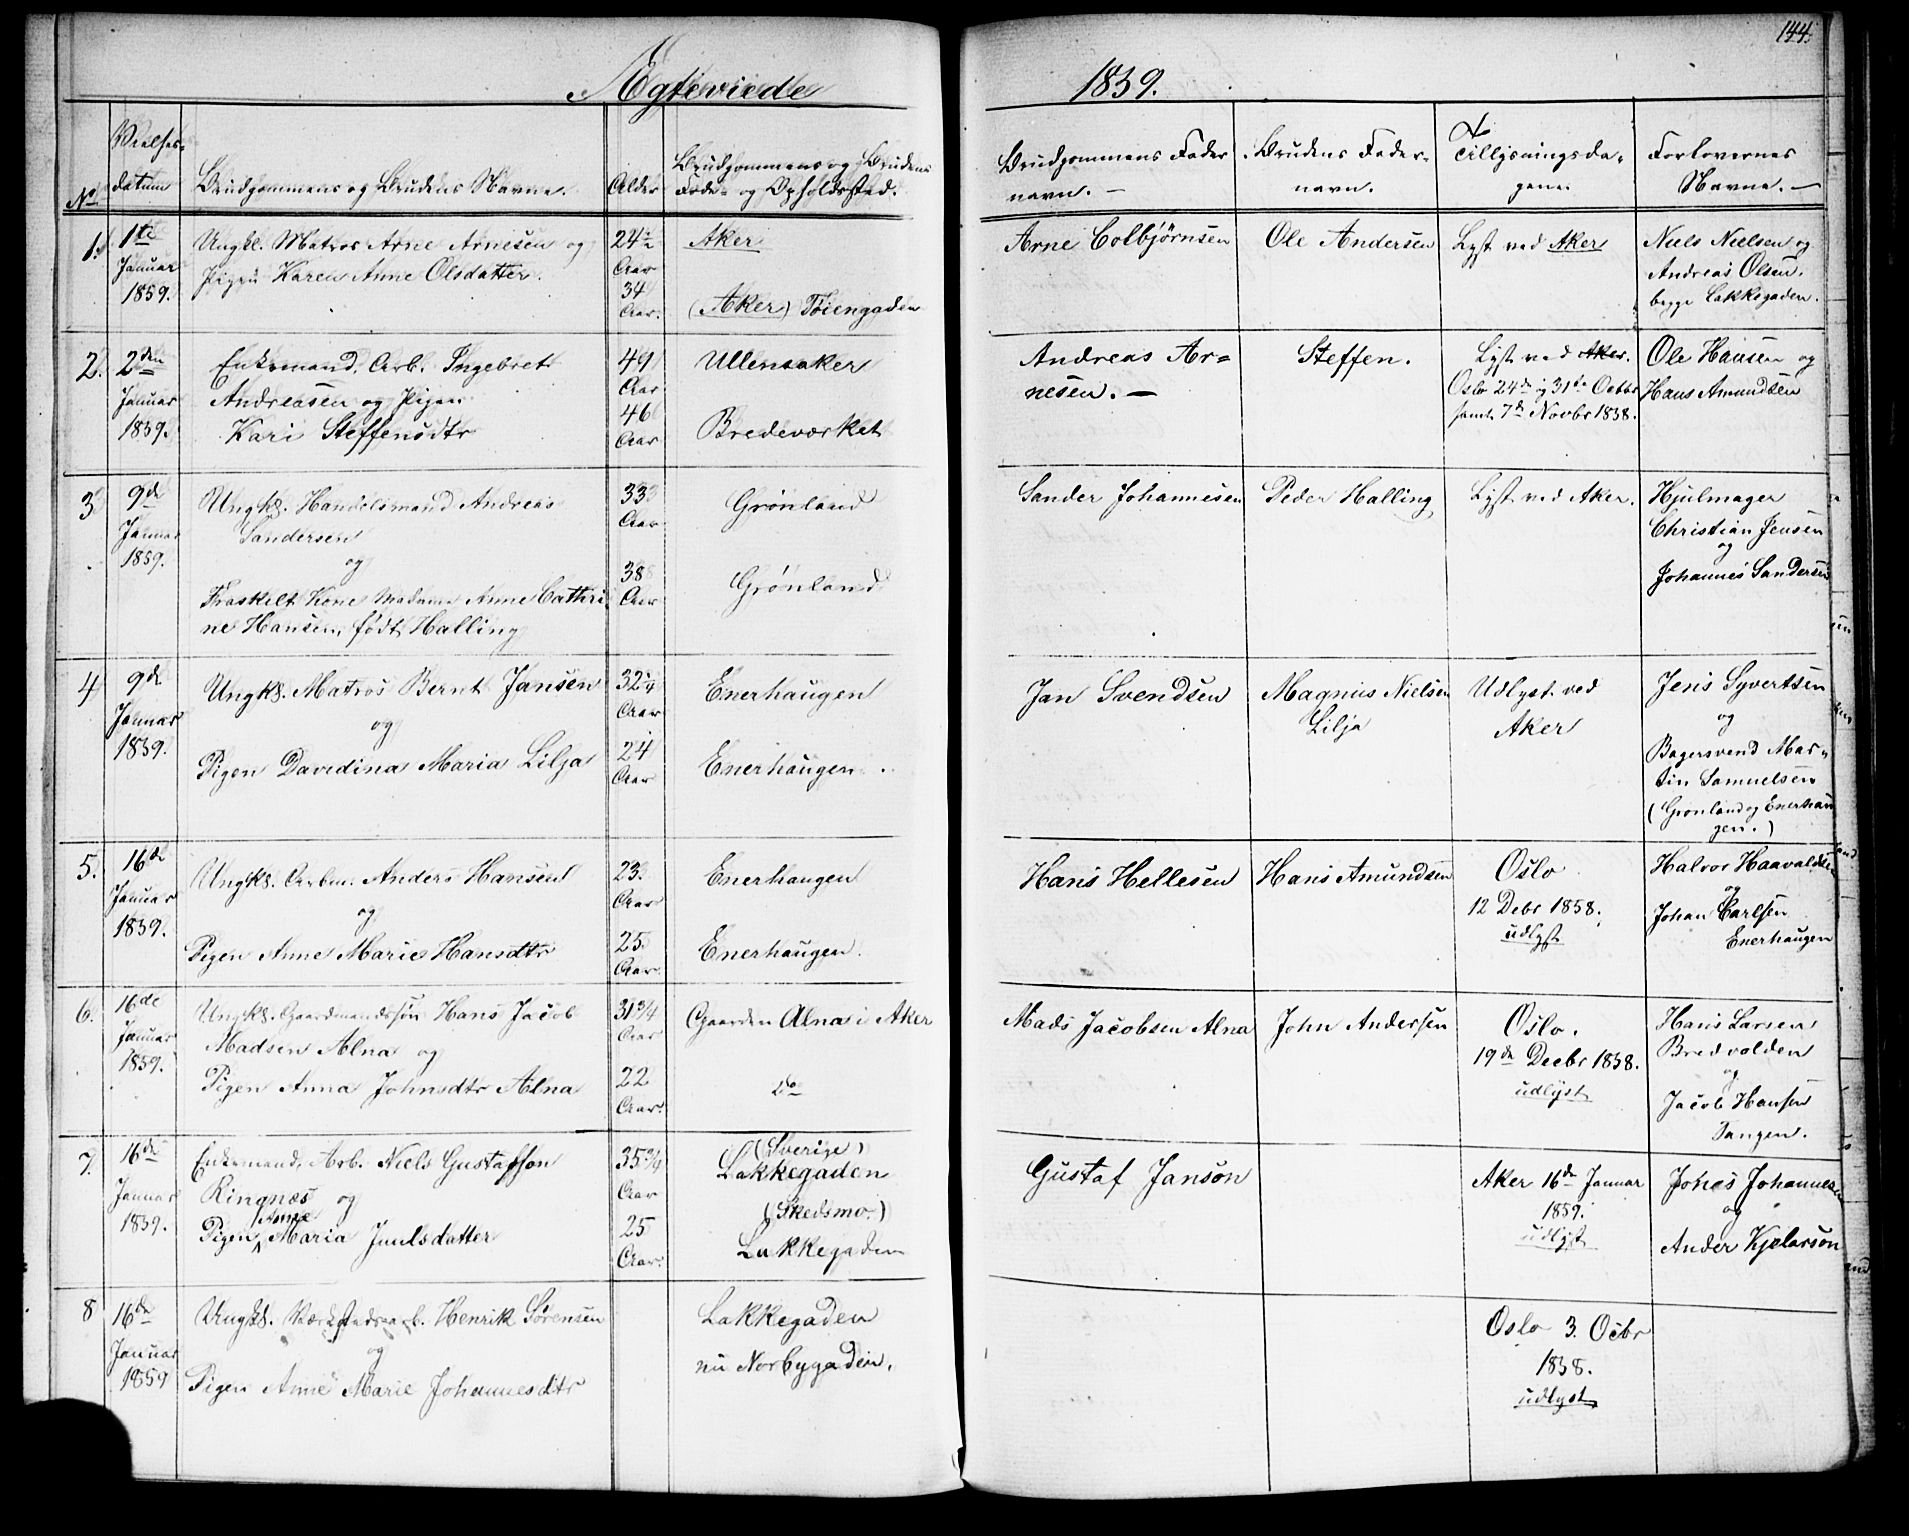 144.
Ægteviede
1859.
No
Vielses-
datum
Brudgommens og Brudens Navne.
Alder
Brudgommens og Brudens
Føde- og Opholdssted.
Brudgommens Fader
navn. —
Brudens Fader-
navn.
Tillysningsda-
gene.
Forlovernes
Navne. —
1.
1te
Januar
1859.
Ungkl. Matros Arne Arnesen og
Pigen Karen Anne Olsdatter.
24
Aar
34
Aar.
Aker
(Aker) Töiengaden
Arne Colbjørnsen
Ole Andersen
Lyst ved Aker
Niels Nielsen og
Andreas Olsen.
begge Lakkegaden.
2.
2den
Januar
1859.
Enkemand. Arb. Ingebret
Andreasen og Pigen
Kari Steffensdtr
49
Aar
46
Aar
Ullensaker
Bredeværket
Andreas Ar-
nesen. —
Steffen.
Lyst ved Aker.
Oslo 24de og 31te Octbr
samt 7de Novbr 1858.
Ole Hansen og
Hans Amundsen
3
9de
Januar
1859.
Ungks. Handelsmand Andreas
Sandersen
og
Fraskilt Kone Madame Anne Cathri
ne Hansen, født Halling
33
Aar
38
Aar
Grønland
Grønland
Sander Johannesen
Peder Halling
Lyst ved Aker.
Hjulmager
Christian Jensen
og
Johannes Sandersen
4
9de
Januar
1859.
Ungks. Matros Bernt Jansen
og
Pigen Davidina Maria Lilja
32 1/4
Aar
24
Aar
Enerhaugen
Enerhaugen.
Jan Svendsen
Magnus Nielsen
Lilja
Udlyst ved
Aker
Jens Syvertsen
og
Bagersvend Mar-
tin Samuelsen
(Grønland og Enerhau
gen.)
5.
16de
Januar
1859.
Ungks. Arbm. Anders Hansen
og
Pigen Anne Marie Hansdtr
23.
Aar
25.
Aar.
Enerhaugen
Enerhaugen.
Hans Hellesen
Hans Amundsen
Oslo
12 Debr 1858.
udlyst
Halvor Haavaldsen
og
Johan Carlsen
Enerhaugen
6.
16de
Januar
1859.
Ungks. Gaardmandssøn Hans Jacob
Madsen Alna og
Pigen Anna Johnsdtr Alna
31 3/4
Aar
22
Aar.
Gaarden Alna i Aker
do
Mads Jacobsen Alna
John Andersen
Oslo.
19de Decbr 1858.
udlyst
Hans Larsen
Bredvolden
og
Jacob Hansen
Tangen.
7.
16de
Januar
1859.
Enkemand, Arb. Niels Gustafson
Ringnæs og
Anne
Pigen Maria Juulsdatter
35 3/4
Aar
25
Aar.
(Sverige)
Lakkegaden
(Skedsmo.)
Lakkegaden
Gustaf Janson
Aker 16de Januar
1859.
udlyst
Johes Johannesen
og
Ander Kjelarson
8
16de
Januar
1859
Ungks. Værkstedsarb. Henrik Sørensen
og
Pigen Anne Marie Johannesdtr
Lakkegaden
nu Norbygaden.
Oslo 3. Ocbr
1858.
udlyst